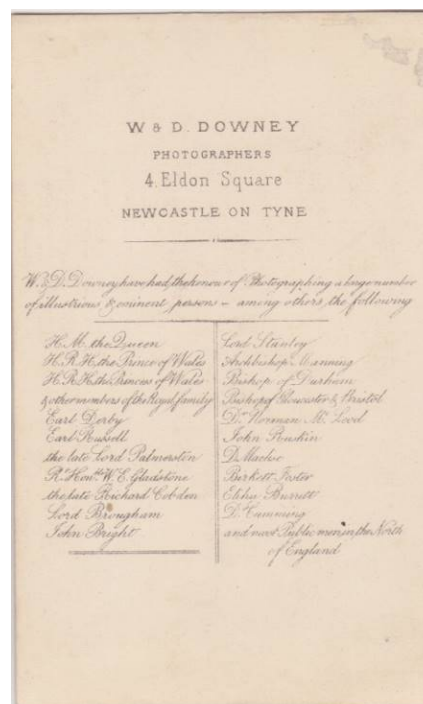 W & D. DOWNEY
PHOTOGRAPHERS
4. Eldon Square
NEWCASTLE ON TYNE
W. & D. Downey have had, the honour of Photographing a large number
of illustrious & eminent person – among others, the following
H. M. the Queen
H. R. H. the Prince of Wales
H. R. H. the Princess of Wales
& other members of the Royal family
Earl Derby
Earl Russell
the late Lord Palmerston
Rt. Honble. W. E. Gladstone
the late Richard Cobden
Lord Brougham
John Bright
Lord Stanley
Archbishop Manning
Bishop of Durham
Bishop of Gloucester & Bristol
Dr. Norman Mc. Leod
John Ruskin
Birkett Foster
Elihu Burritt
Dr. Cumming
and most Public men in the North
of England